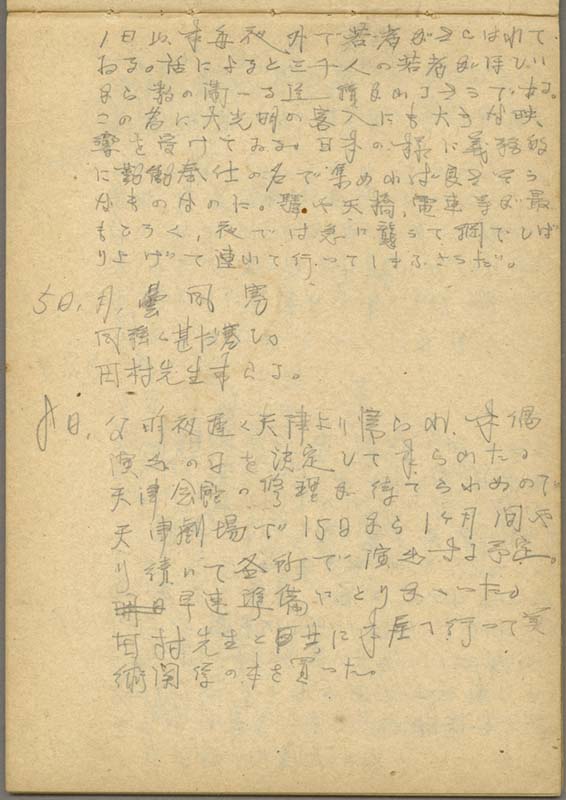 1日以来毎夜外で若者がさらはれて
ゐる。話によると三千人の若者がほしい
から数の揃ーる迄続けられるさうである。
この為に大光明の客入にも大きな映
響を受けてゐる。日本の様に義務的
に勤労奉仕の名で集めれば良さそう
なものなのに。駅や天橋、電車等が最
もひどく、夜では急に襲って綱でしば
り上げて連れて行ってしまふさうだ。
5日,月,曇 風 寒
風強く甚だ寒し。
田村先生来らる。
8日,父昨夜遅く天津より帰られ、木偶
演出の日を決定して来られたる
天津会館の修理が待てられめので
天津劇場で15日から1ヶ月間や
り続いて各所で演出する予定。
早速準備にとりかゝった。
田村先生と共に本屋へ行って美
術関係の本を買った。